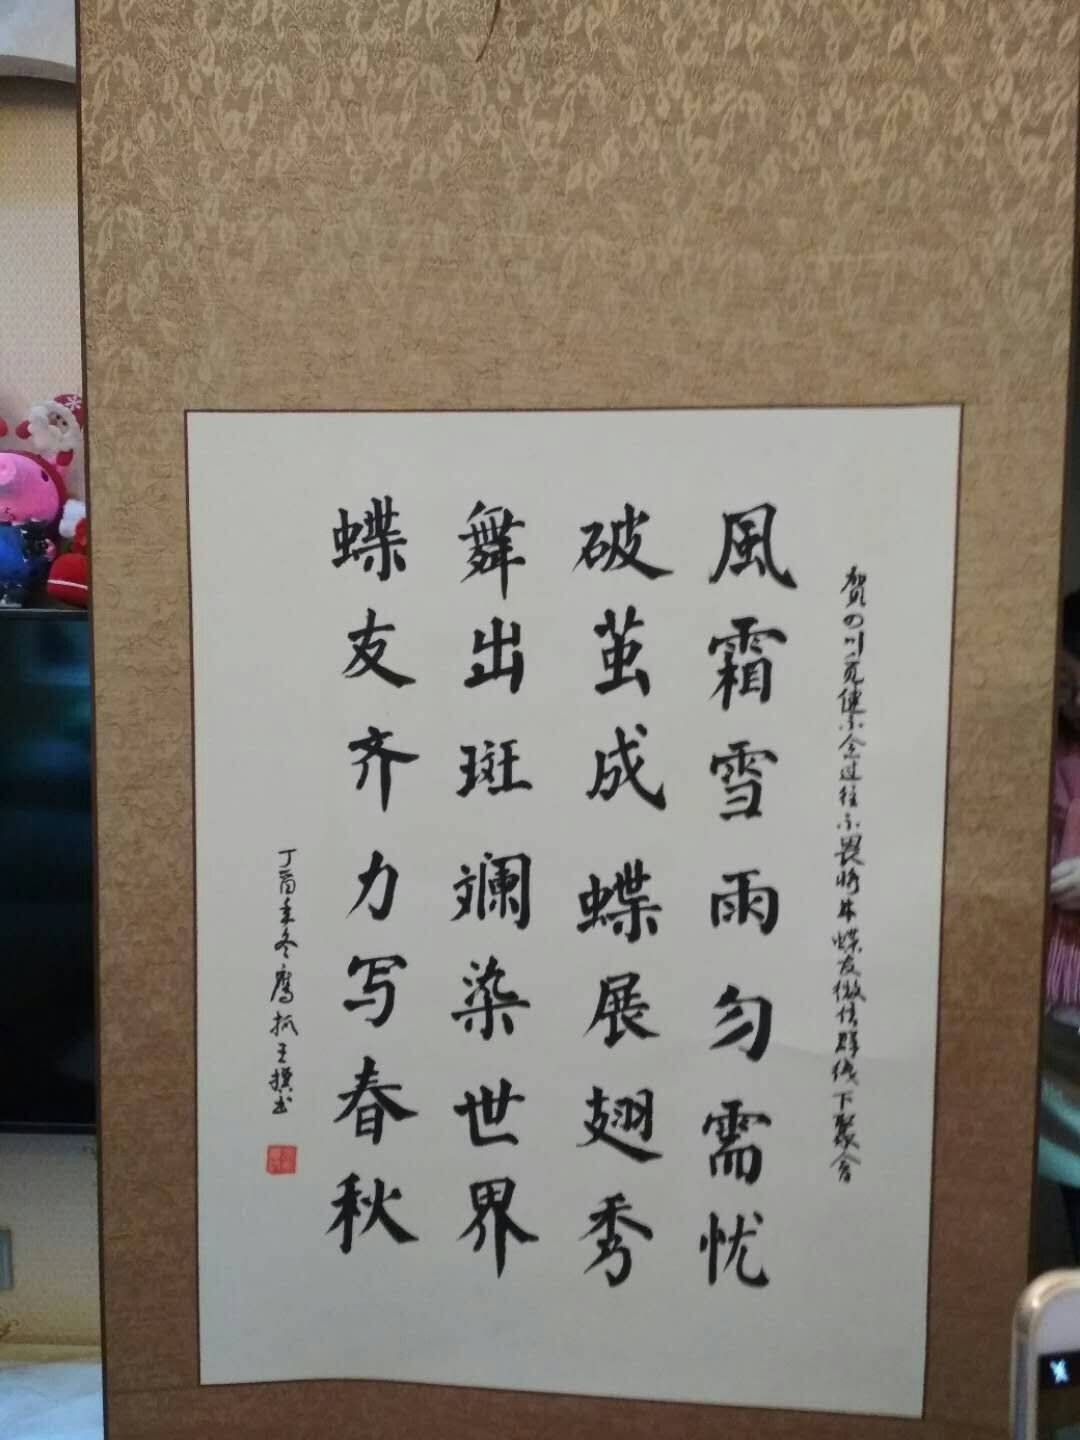 賀四川克健不念过往不畏将来蝶友微信群线下聚会
風霜雪雨勿需忧
破茧成蝶展翅秀
舞出斑斓染世界
蝶友齐力写春秋
丁酉年冬鹰抓王撰书